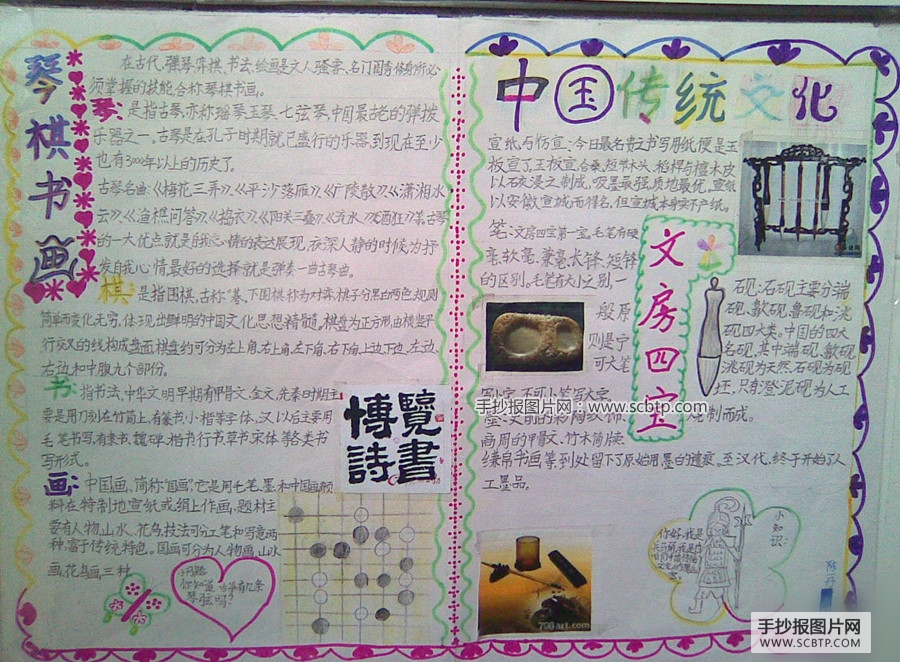 琴棋书画
在古代,弹琴、弈棋、书法、绘画是文人骚客、名门闺秀修身所必
须掌握的技能,合称琴棋书画。
琴,是指古琴,亦称瑶琴、玉琴、七弦琴,中国最古老的弹拨
乐器之一。古琴是在孔子时期就已盛行的乐器,到现在至少
也有3000年以上的历史了。
古琴名曲:《梅花三弄》、《平沙落雁》、《广陵散》、《潇湘水
云》、《渔樵问答》、《捣衣》、《阳关三叠》、《流水》、《酒狂》等。古琴
的一大优点就是自我心情的表达展现,夜深人静的时候为抒
发自我心情最好的选择就是弹奏一曲古琴曲。
棋:是指围棋,古称"棊",下围棋称为对弈,棋子分黑白两色,规则
简单而变化无穷,体现出鲜明的中国文化思想精髓。棋盘为正方形,由横竖平
行交叉的线构成盘面,棋盘约可分为左上角、右上角、左下角、右下角、上边、下边、左边、
右边和中腹九个部份。
书:指书法,中华文明早期有甲骨文、金文,先秦时期主
要是用刀刻在竹简上,有篆书、小楷等字体,汉以后主要用
毛笔书写,有隶书、魏碑、楷书、行书、草书、宋体等各类书
写形式。
画:中国画,简称"国画",它是用毛笔、墨和中国画颜
料在特制地宣纸或绢上作画,题材主
要有人物、山水、花鸟,技法可分工笔和写意两
种,富于传统特色。国画可分为人物画、山水
画、花鸟画三种
博览诗書
你知道古筝有几条
琴弦吗?
中国传统文化
宣纸与仿宣:今日最名贵之书写用纸便是玉
板宣了,玉板宣合桑、短节木头、稻杆与檀木皮
以石灰浸之制成,吸墨最强,质地最优,宣纸
以安徽宣城而得名,但宣城本身实不产纸。
笔:文房四宝第一宝,毛笔有硬
毫、软毫、兼毫、长锋、短锋
的区别。毛笔有大小之别,一
般原
则是宁
可大笔
写小字,不可小笔写大字。
高周的甲骨文、竹木简牍、
缣帛书画等到处留下了原始用墨的遗痕,至汉代,终于开始了人
工墨品。
文房四宝
砚:石砚主要分端
砚、歙砚、鲁砚和洮
砚四大类。中国的四大
名砚,其中端砚、歙砚
洮砚为天然石砚为砚
坯,只有澄泥砚为人工
烧制而成。
手抄报图片网:www.scbtp.com
798art.com
小知识:
手抄报图片网
WWW.SCBTP.COM